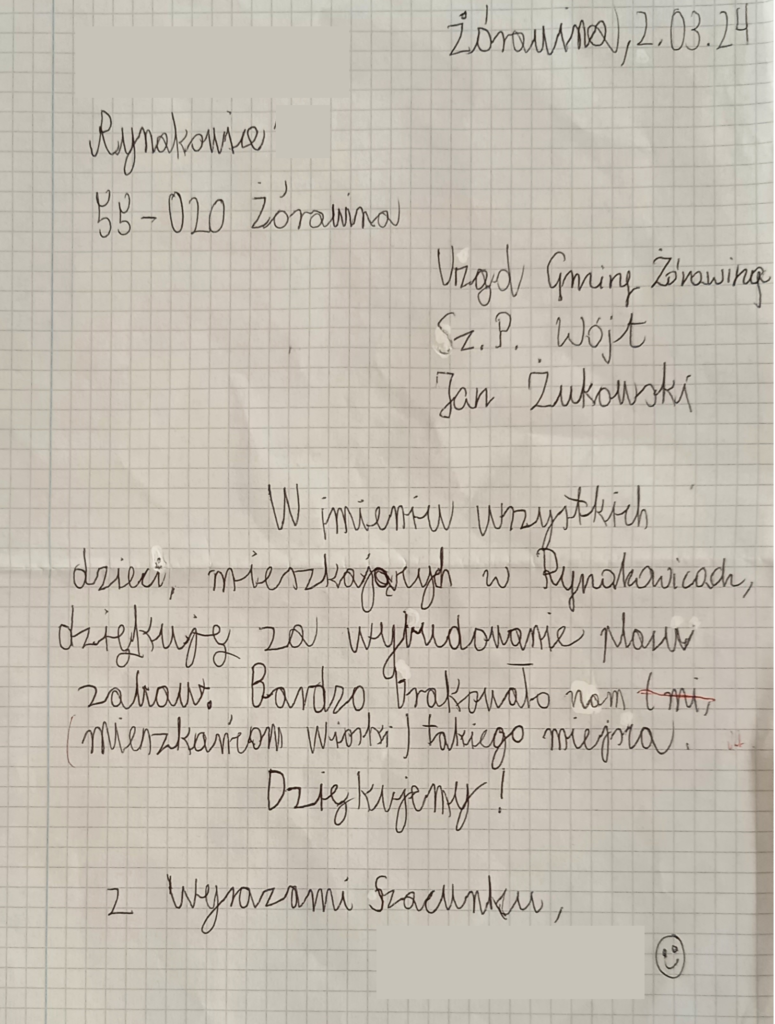 Żórawina, 2.03.24
Rynakowice
55-020 Żórawina
Urząd Gminy Żórawina
Sz. P. Wójt
Jan Żukowski
W imieniu wszystkich
dzieci, mieszkających w Rynakowicach,
dziękuję za wybudowanie placu
zabaw. Bardzo brakowało nam (mi,
(mieszkańcom Wioski) takiego miejsca.
Dziękujemy!
Z Wyrazami Szacunku,